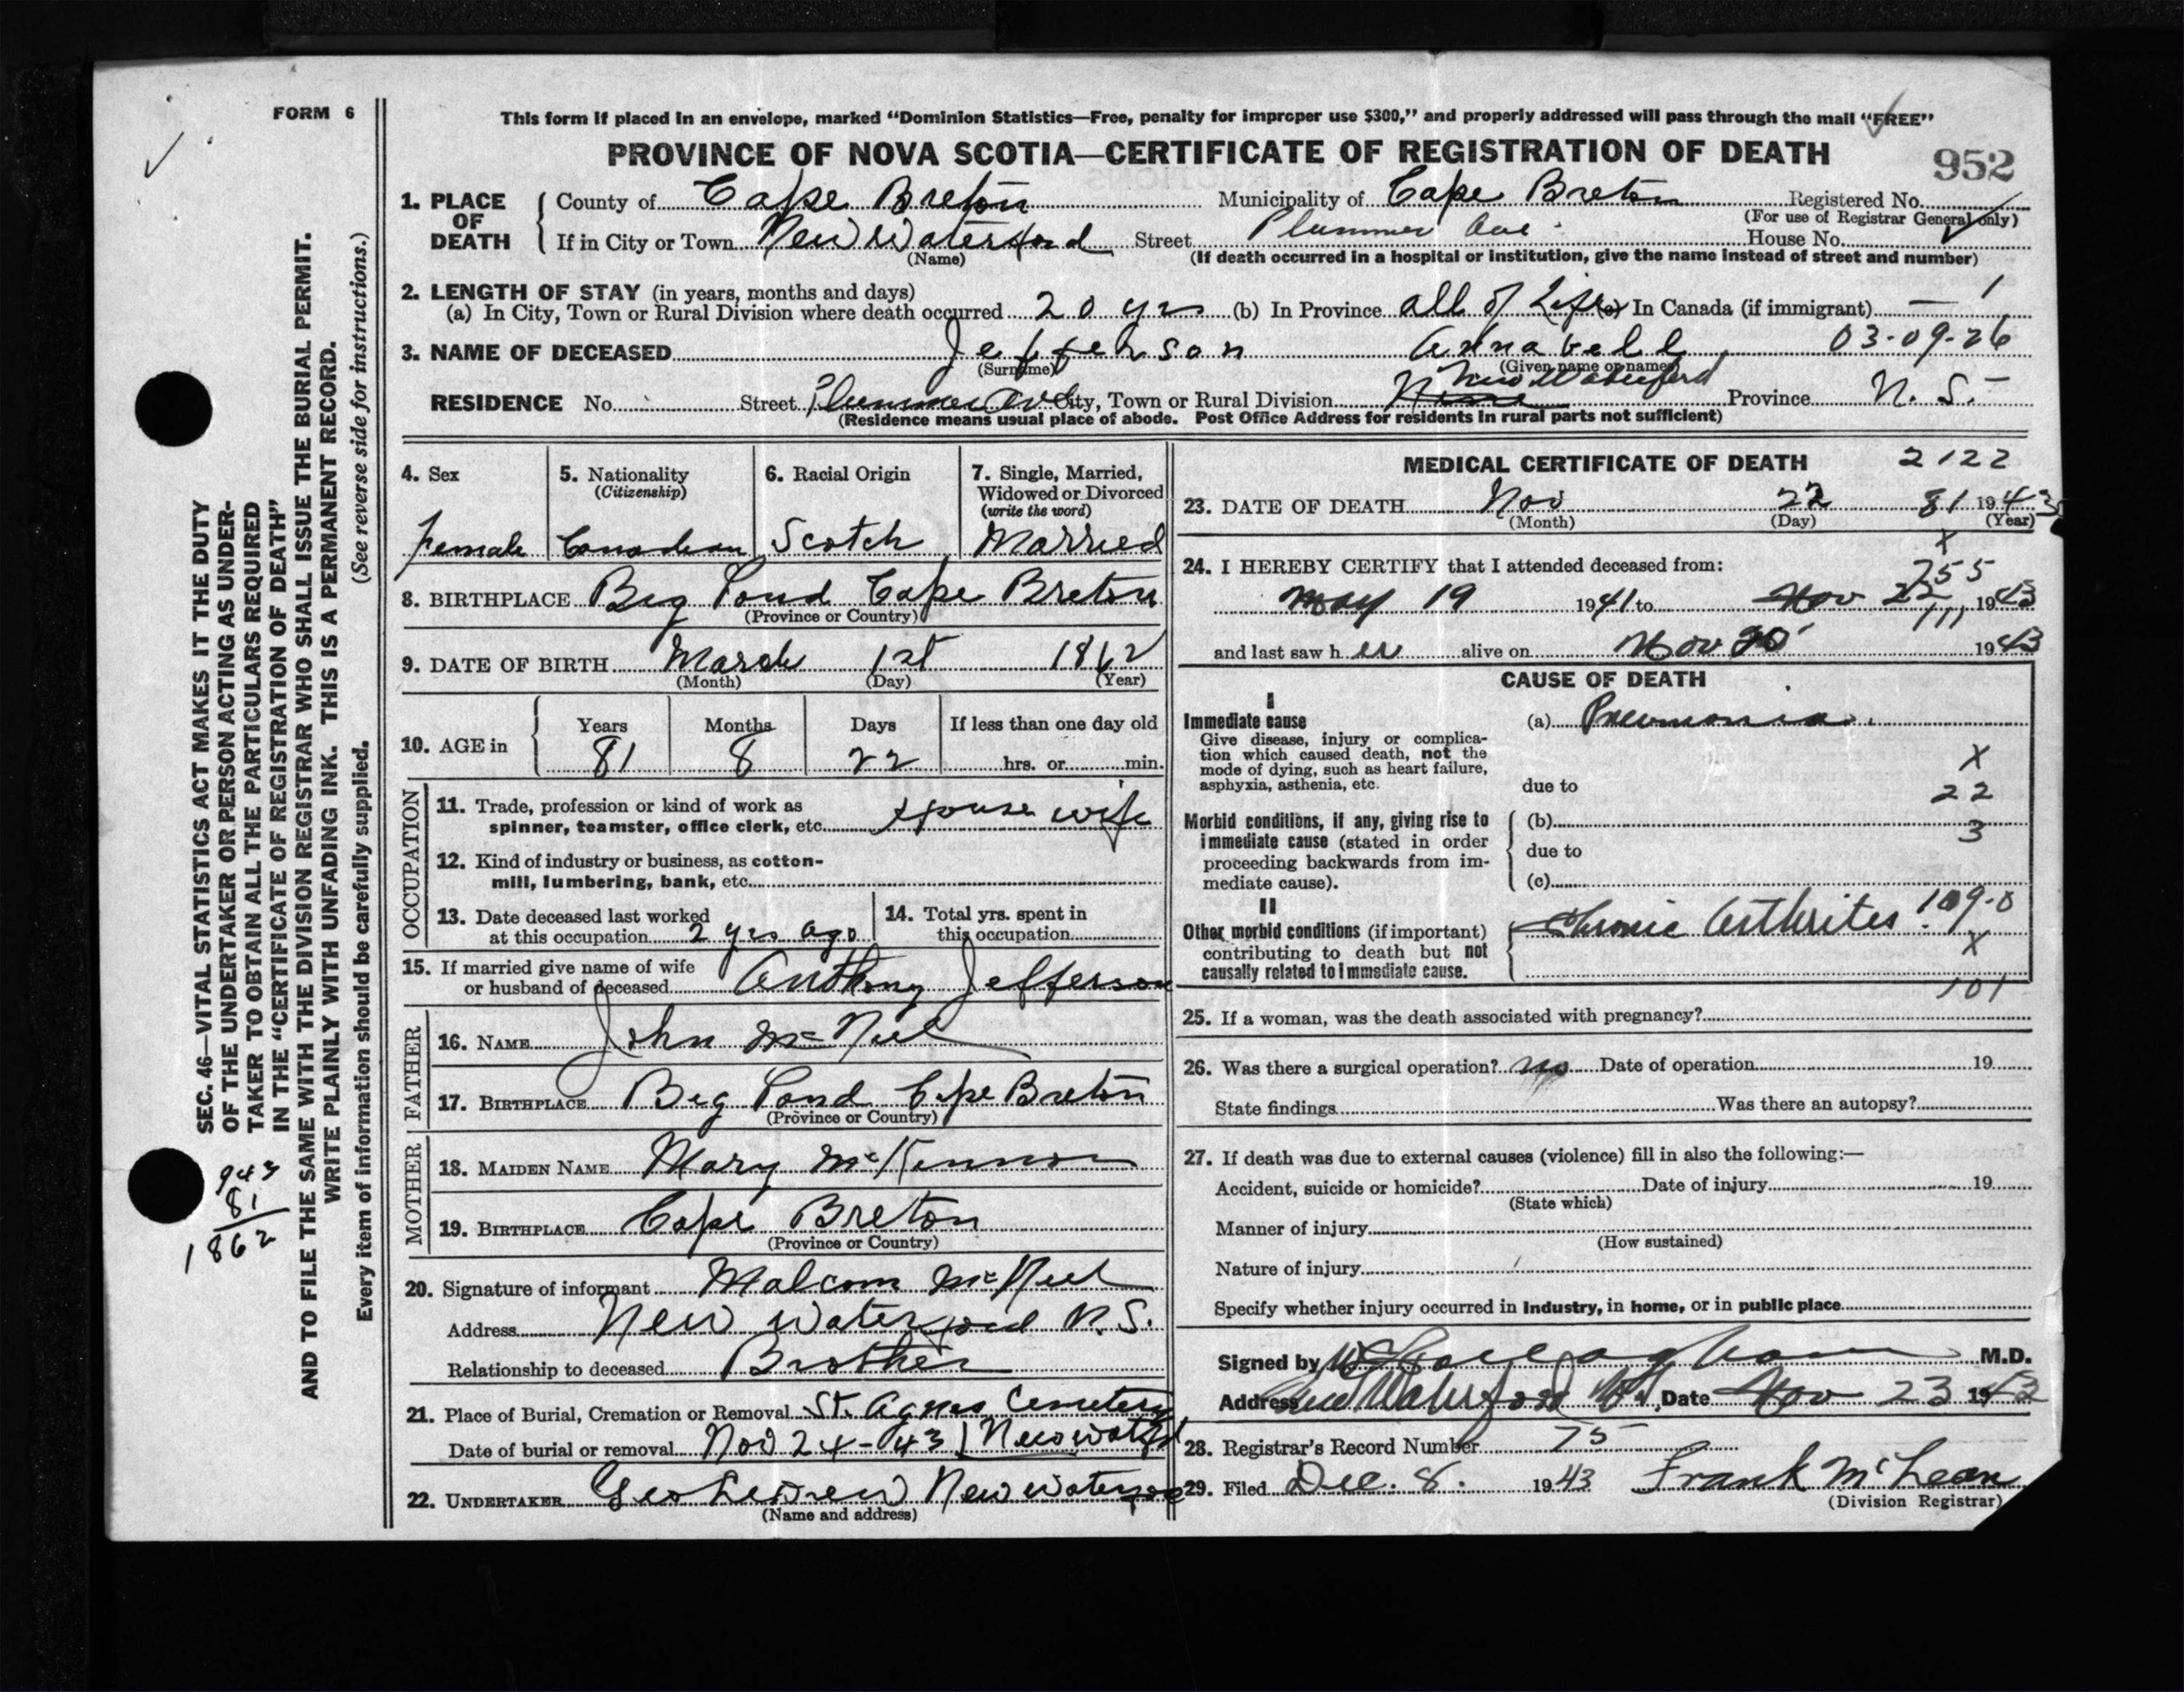 FORM 6
This form if placed in an envelope, marked “Dominion Statistics—Free, penalty for improper use $300,” and properly addressed will pass through the mail “FREE”
PROVINCE OF NOVA SCOTIA—CERTIFICATE OF REGISTRATION OF DEATH
952
1. PLACE OF DEATH
County of Cape Breton Municipality of Cape Breton Registered No.
(For use of Registrar General only)
If in City or Town New Waterford Street Plummer Ave House No.
(Name) (If death occurred in a hospital or institution, give the name instead of street and number)
2. LENGTH OF STAY (in years, months and days)
(a) In City, Town or Rural Division where death occurred 20 yrs (b) In Province all of Life (c) In Canada (if immigrant) — 1
3. NAME OF DECEASED Jefferson Annabell 03-09-26
(Surname) (Given name or names)
RESIDENCE No. Street Plummer Ave City, Town or Rural Division New Waterford Province N. S.
(Residence means usual place of abode. Post Office Address for residents in rural parts not sufficient)
4. Sex
Female
5. Nationality
(Citizenship)
Canadian
6. Racial Origin
Scotch
7. Single, Married,
Widowed or Divorced
(write the word)
Married
8. BIRTHPLACE Big Pond Cape Breton
(Province or Country)
9. DATE OF BIRTH March 1st 1862
(Month) (Day) (Year)
10. AGE in
Years Months Days If less than one day old
81 8 22 hrs. or min.
OCCUPATION
11. Trade, profession or kind of work as
spinner, teamster, office clerk, etc. House wife
12. Kind of industry or business, as cotton-
mill, lumbering, bank, etc.
13. Date deceased last worked
at this occupation 2 yrs ago
14. Total yrs. spent in
this occupation
15. If married give name of wife
or husband of deceased Anthony Jefferson
FATHER
16. NAME John McNeil
17. BIRTHPLACE Big Pond Cape Breton
(Province or Country)
MOTHER
18. MAIDEN NAME Mary McKinnon
19. BIRTHPLACE Cape Breton
(Province or Country)
20. Signature of informant Malcom McNeil
Address New Waterford N.S.
Relationship to deceased Brother
21. Place of Burial, Cremation or Removal St. Agnes Cemetery
Date of burial or removal Nov 24-43 New Watfd
22. UNDERTAKER Geo New Waterford
(Name and address)
MEDICAL CERTIFICATE OF DEATH 2122
23. DATE OF DEATH Nov 22 81 1943
(Month) (Day) (Year)
x
24. I HEREBY CERTIFY that I attended deceased from:
755
May 19 1941 to Nov 22 1943
111
and last saw h er alive on Nov 20 1943
CAUSE OF DEATH
I
Immediate cause
Give disease, injury or complica-
tion which caused death, not the
mode of dying, such as heart failure,
asphyxia, asthenia, etc.
(a) Pneumonia
x
due to
22
Morbid conditions, if any, giving rise to
immediate cause (stated in order
proceeding backwards from im-
mediate cause).
(b)
3
due to
(c)
II
Other morbid conditions (if important)
contributing to death but not
causally related to immediate cause.
Chronic Arthrites. 109-0
x
101
25. If a woman, was the death associated with pregnancy?
26. Was there a surgical operation? no Date of operation 19
State findings Was there an autopsy?
27. If death was due to external causes (violence) fill in also the following:—
Accident, suicide or homicide? Date of injury 19
(State which)
Manner of injury
(How sustained)
Nature of injury
Specify whether injury occurred in Industry, in home, or in public place
Signed by M.D.
Address New Waterford Date Nov 23 1943
28. Registrar's Record Number 75
29. Filed Dec. 8. 1943 Frank McLean
(Division Registrar)
SEC. 46—VITAL STATISTICS ACT MAKES IT THE DUTY
OF THE UNDERTAKER OR PERSON ACTING AS UNDER-
TAKER TO OBTAIN ALL THE PARTICULARS REQUIRED
IN THE “CERTIFICATE OF REGISTRATION OF DEATH”
AND TO FILE THE SAME WITH THE DIVISION REGISTRAR WHO SHALL ISSUE THE BURIAL PERMIT.
WRITE PLAINLY WITH UNFADING INK. THIS IS A PERMANENT RECORD.
Every item of information should be carefully supplied. (See reverse side for instructions.)
943
81
1862